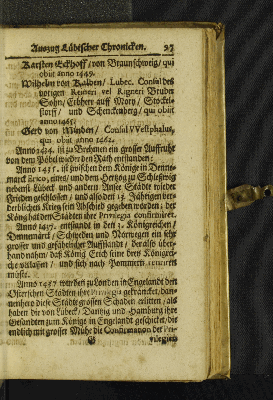 Auszug Lübischer Chronicken. 97
Karsten Eckhoff / von Braunschweig / qui
obiit anno 1449.
Wilhelm von Kalden / Lubec. Consul des
vorigen Reineri vel Rigneri Bruder
Sohn / Erbherr auff Mory / Stockels-
storff / und Schenckenberg / qui obiit
anno 1465.
Gerd von Minden / Consul VVestphalus,
qui obiit anno 1462.
Anno 1434. ist zu Brehmen ein grosser Auffruhr
von dem Pöbel wieder den Rath entstanden:
Anno 1435. ist zwischen dem Könige in Denne-
marck Erico, eines / und dem Hertzog zu Schleswig
nebenst Lübeck und andern Anse Städte wieder
Frieden geschlossen / und also den 13. Jährigen ver-
derblichen Krieg sein Abschied gegeben worden / der
König hat den Städten ihre Privilegia confirmiret.
Anno 1437. entstand in den 3. Königreichen /
Dennemarck / Schweden und Norwegen ein sehr
grosser und gefährlicher Auffstand / der also über-
hand nahm / daß König Erich seine drey Königrei-
che verlassen / und sich nach Pommern retiriren
müste.
Anno 1437 wurden zu London in Engelandt den
Osterschen Städten ihre Privilegia gekräncket / dan-
nenhero diese Städte grossen Schaden erlitten / als
haben die von Lübeck / Dantzig und Hamburg ihre
Gesandten zum Könige in Engelandt geschicket / die
endlich mit grosser Mühe die Confirmation der Pri-
G vilegien